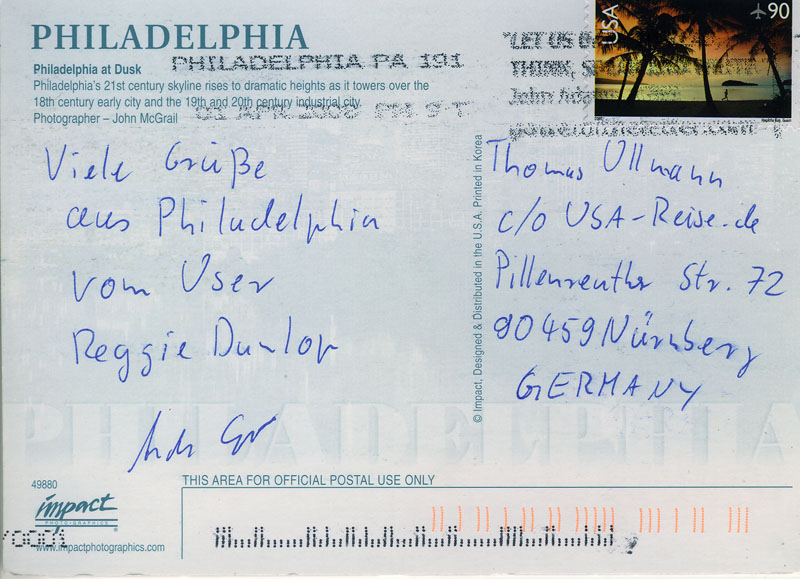 PHILADELPHIA
Philadelphia at Dusk
Philadelphia's 21st century skyline rises to dramatic heights as it towers over the
18th century early city and the 19th and 20th century industrial city.
Photographer – John McGrail
PHILADELPHIA PA 191
01 APR 2008 PM 9 T
"LET US
THINK,
John
USA
90
Viele Grüße
aus Philadelphia
vom User
Reggie Dunlop
© Impact, Designed & Distributed in the U.S.A. Printed in Korea
Thomas Ullmann
c/o USA-Reise.de
Pillenreuther Str. 72
90459 Nürnberg
GERMANY
PHILADELPHIA
49880
impact
PHOTO-GRAPHICS
www.impactphotographics.com
THIS AREA FOR OFFICIAL POSTAL USE ONLY